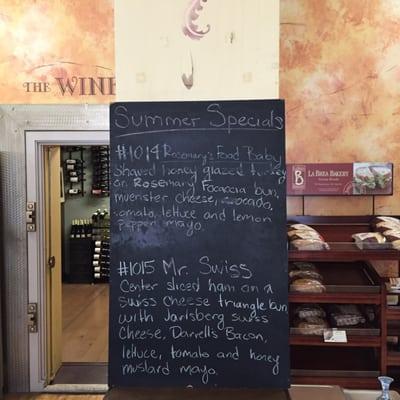 THE WINE
Summer Specials
#1014 Rosemary's Food Baby
Shaved honey glazed turkey
on Rosemary Focaccia bun,
muenster cheese, avocado,
tomato, lettuce and lemon
pepper mayo.
#1015 Mr. Swiss
Center sliced ham on a
swiss cheese triangle bun
with Jarlsberg swiss
cheese, Darrell's Bacon,
lettuce, tomato and honey
mustard mayo.
B
LA BREA BAKERY